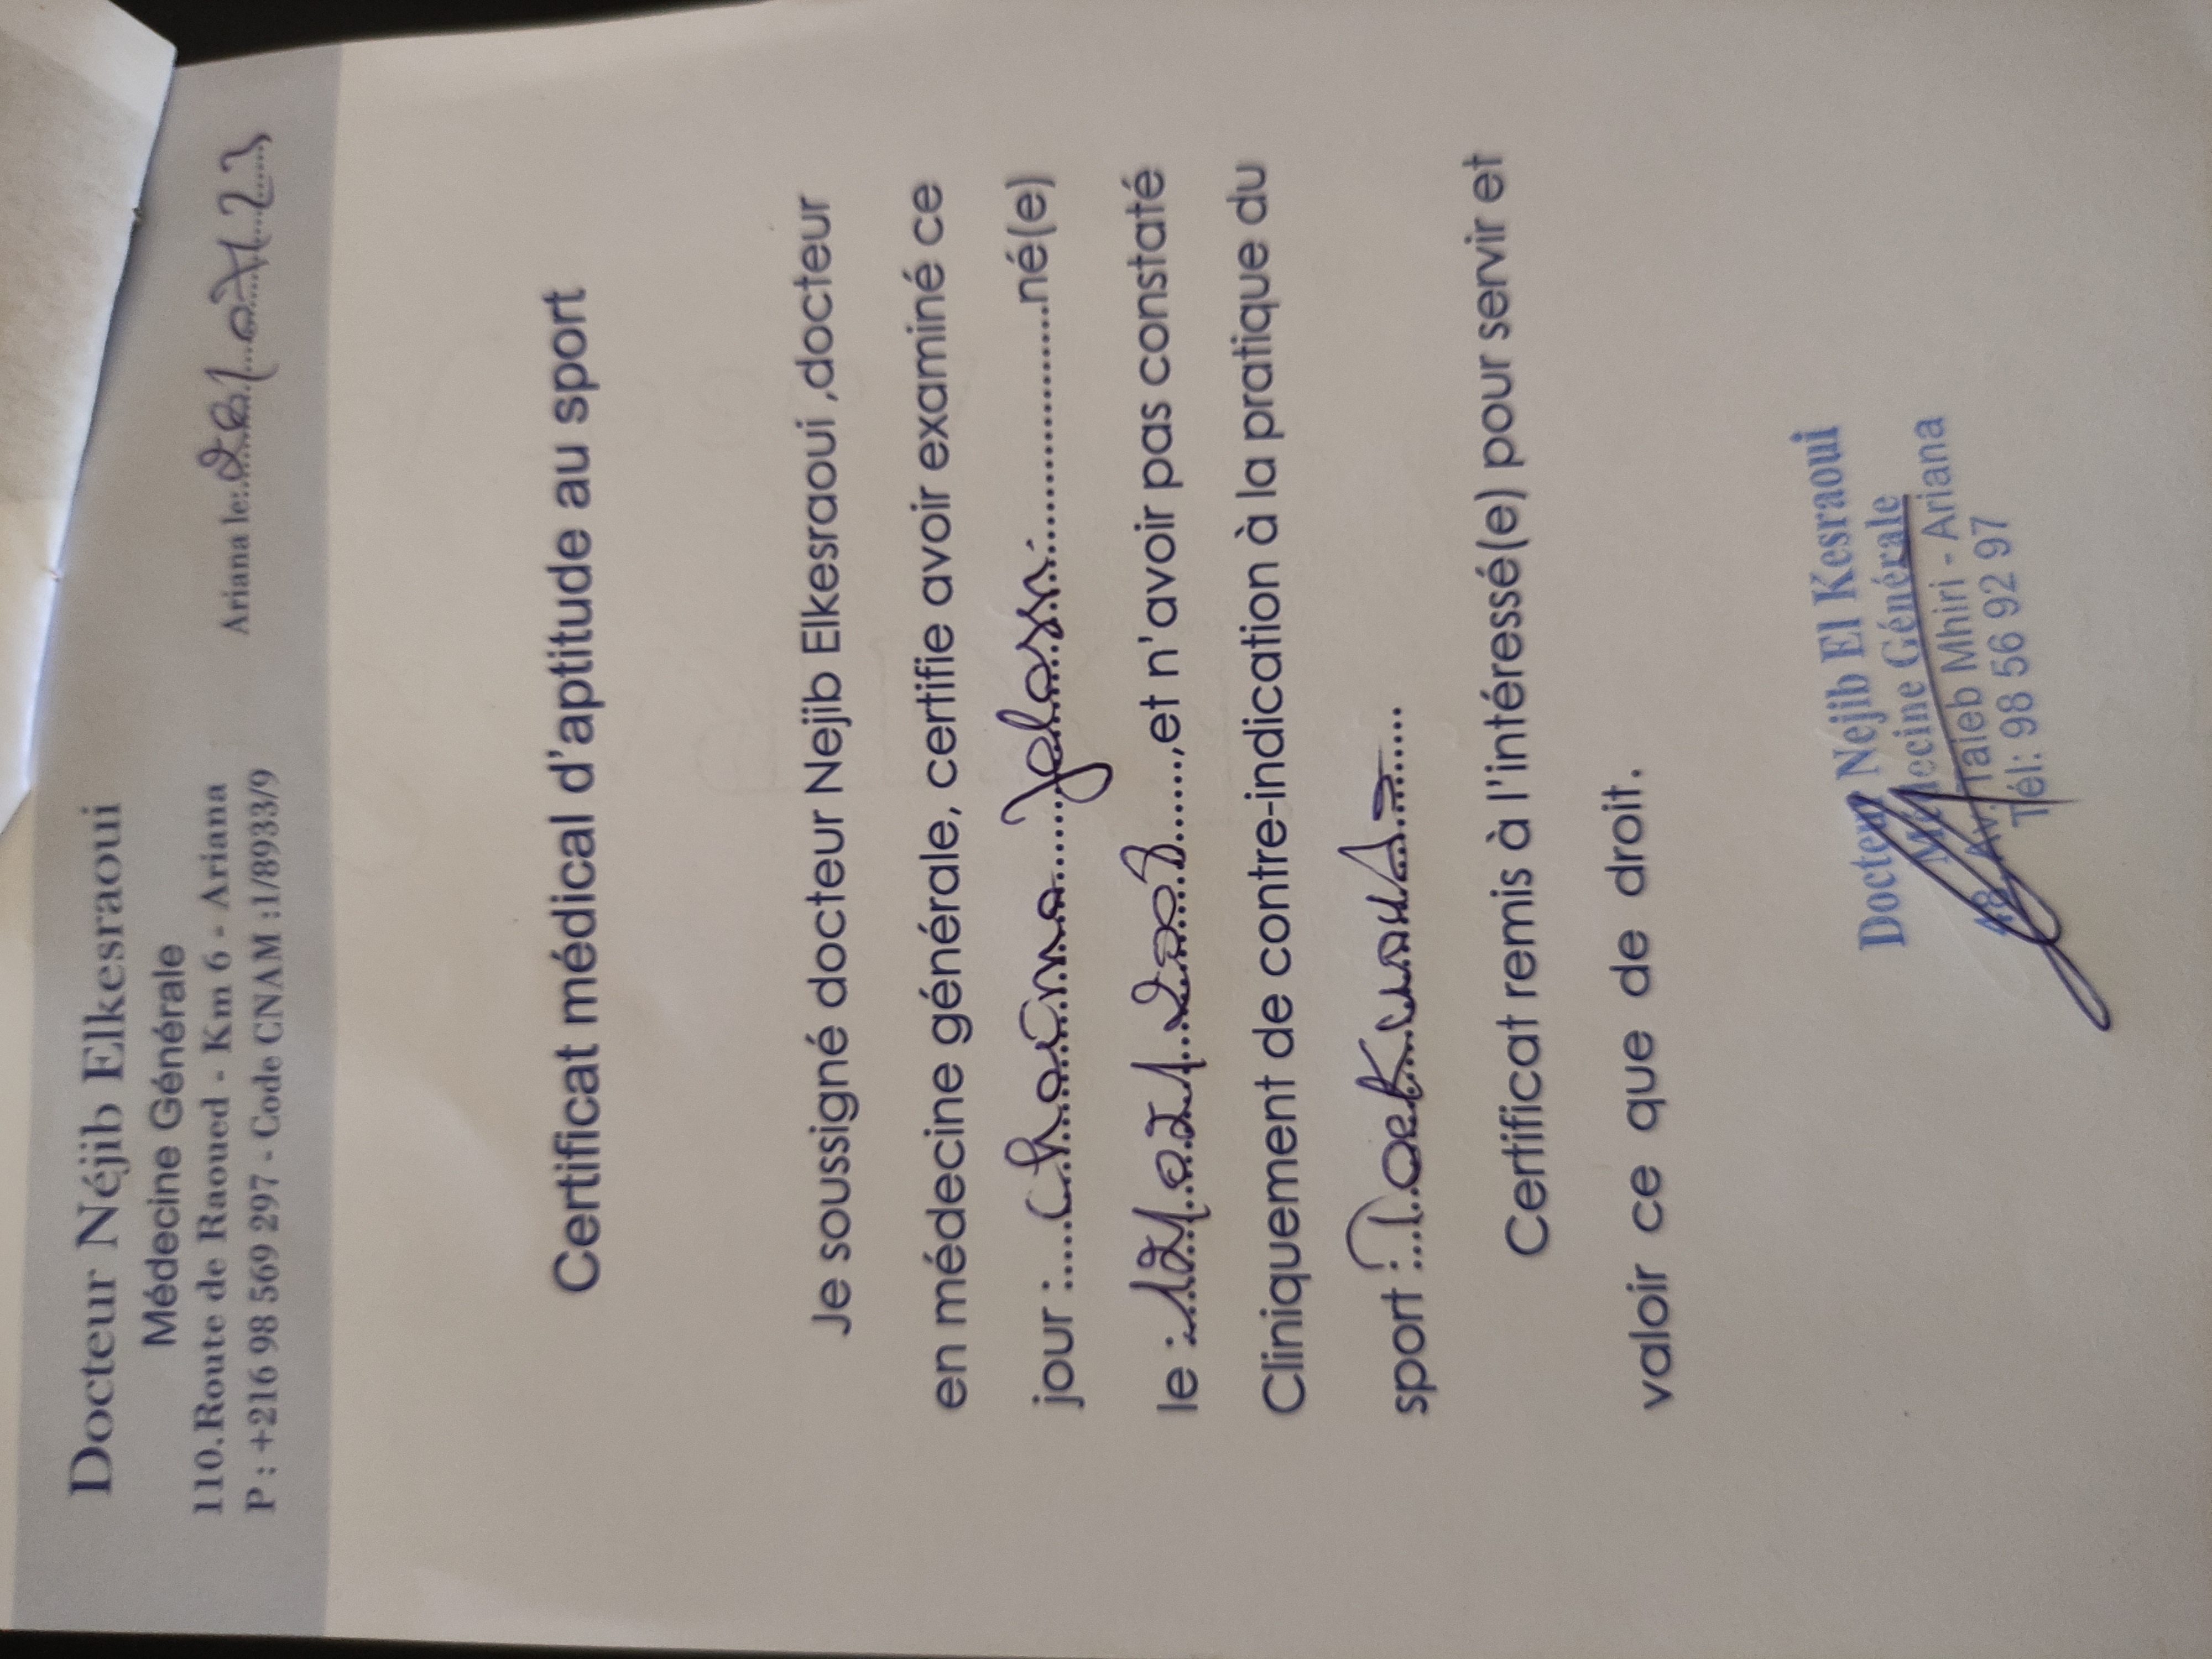 Docteur Néjib Elkesraoui
Médecine Générale
110.Route de Raoued - Km 6 - Ariana
P : +216 98 569 297 - Code CNAM :1/8933/9
Ariana le: 26/07/23
Certificat médical d'aptitude au sport
Je soussigné docteur Nejib Elkesraoui ,docteur
en médecine générale, certifie avoir examiné ce
jour : Chaïma Jelassi né(e)
le : ,et n'avoir pas constaté
Cliniquement de contre-indication à la pratique du
sport : Toekwondo
Certificat remis à l'intéressé(e) pour servir et
valoir ce que de droit.
Docteur Nejib El Kesraoui
Médecine Générale
48 Av. Taieb Mhiri - Ariana
Tél: 98 56 92 97